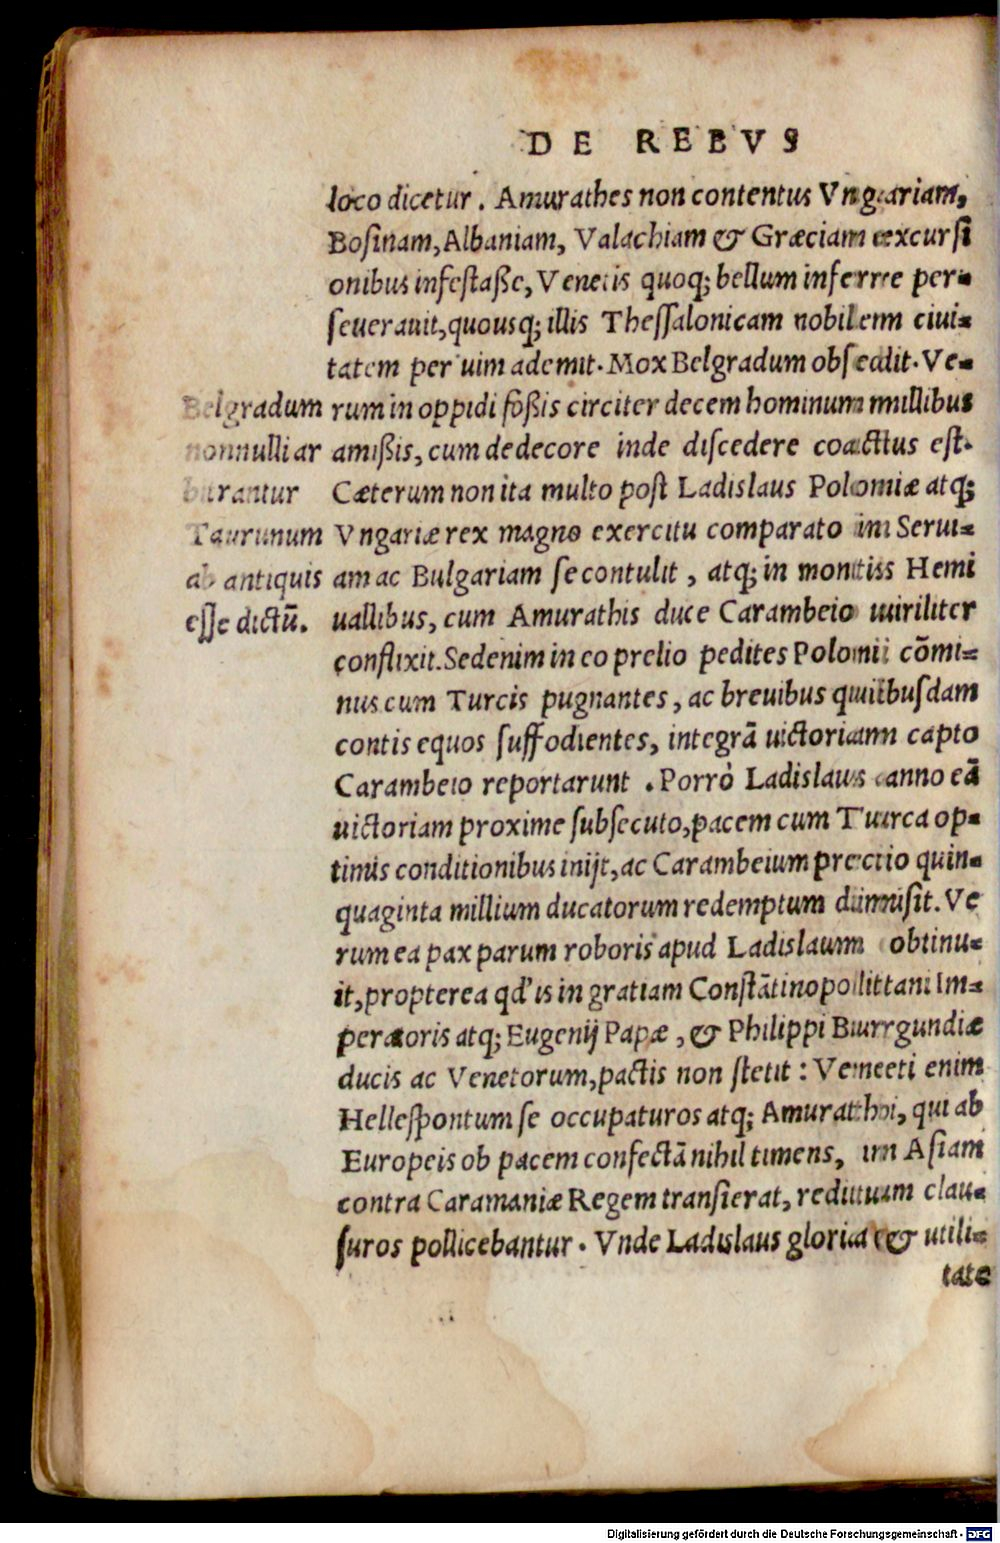 DE REBVS
loco dicetur. Amurathes non contentus Vngariam,
Bosinam, Albaniam, Valachiam & Græciam excursi
onibus infestaße, Venetis quoq; bellum inferre per-
seuerauit, quousq; illis Thessalonicam nobilem ciui-
tatem per uim ademit. Mox Belgradum obsedit. Ve-
rum in oppidi foßis circiter decem hominum millibus
amißis, cum dedecore inde discedere coactus est.
Cæterum non ita multo post Ladislaus Poloniæ atq;
Vngariæ rex magno exercitu comparato in Serui-
am ac Bulgariam se contulit, atq; in montis Hemi
uallibus, cum Amurathis duce Carambeio uiriliter
conflixit. Sedenim in eo prelio pedites Polonii cōmi-
nus cum Turcis pugnantes, ac breuibus quibusdam
contis equos suffodientes, integrā uictoriam capto
Carambeio reportarunt. Porrò Ladislaus anno eā
uictoriam proxime subsecuto, pacem cum Turca op-
timis conditionibus inijt, ac Carambeium precio quin-
quaginta millium ducatorum redemptum dimisit. Ve
rum ea pax parum roboris apud Ladislaum obtinu-
it, propterea qd' is in gratiam Constātinopolitani Im-
peratoris atq; Eugenij Papæ, & Philippi Burgundiæ
ducis ac Venetorum, pactis non stetit: Veneti enim
Hellespontum se occupaturos atq; Amurathi, qui ab
Europeis ob pacem confectā nihil timens, in Asiam
contra Caramaniæ Regem transierat, reditum clau-
suros pollicebantur. Vnde Ladislaus gloria & utili-
tate
Belgradum
nonnulli ar
bitrantur
Taurunum
ab antiquis
esse dictū.
Digitalisierung gefördert durch die Deutsche Forschungsgemeinschaft - DFG